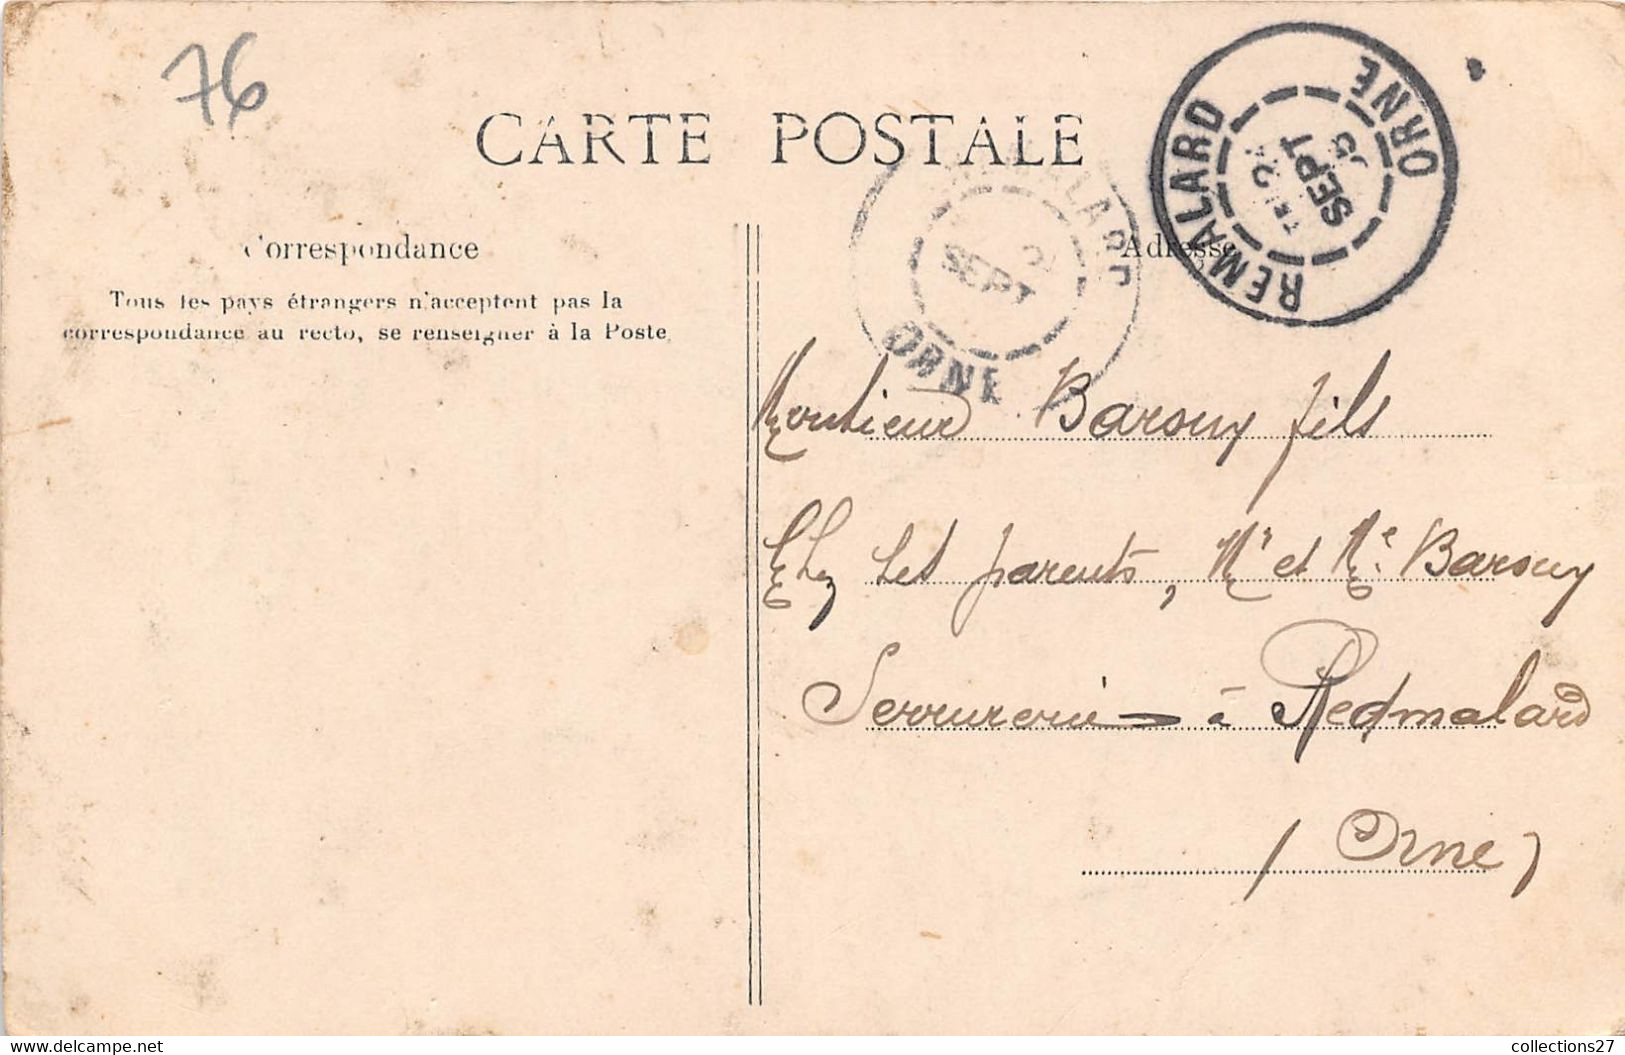 76
CARTE POSTALE
REMALARD
SEPT
05
ORNE
SEPT
ORNE
Correspondance
Adresse
Tous les pays étrangers n'acceptent pas la
correspondance au recto, se renseigner à la Poste
Monsieur Barsuy fils
Chez ses parents, Mr et Me Barsuy
Serrurerie à Redmalard
(Orne)
delcampe.net
collections27